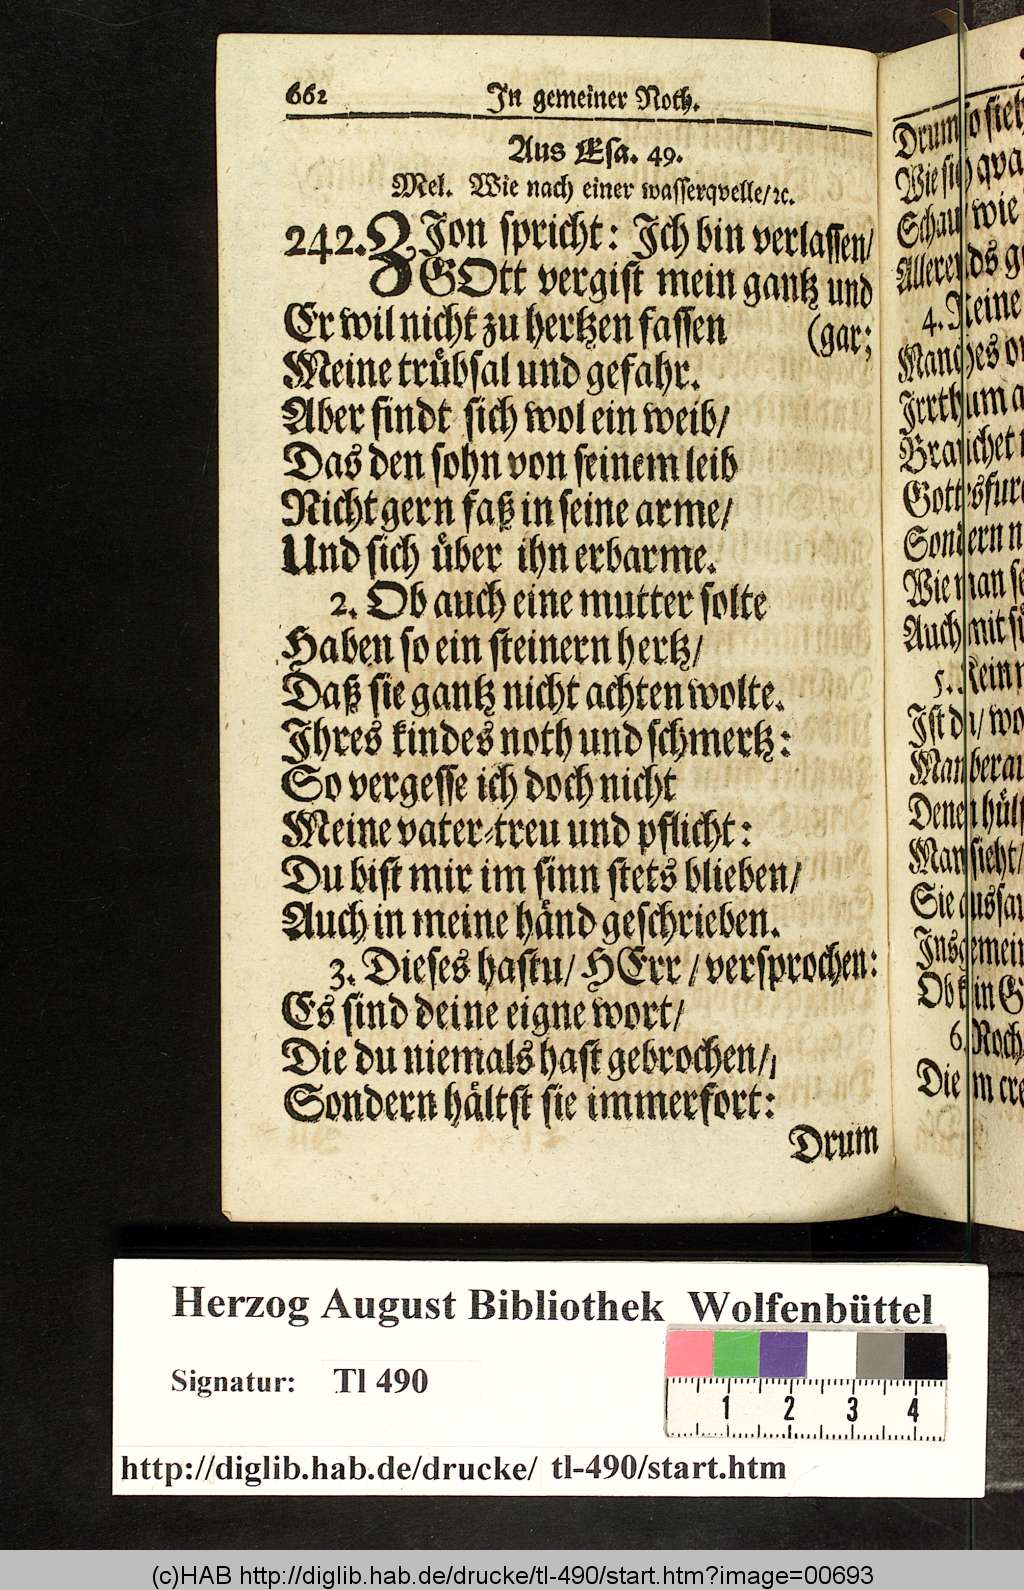 662 In gemeiner Noth.
Aus Esa. 49.
Mel. Wie nach einer wasserqvelle/ ꝛc.
242. ZIon spricht: Ich bin verlassen/
GOtt vergist mein gantz und
Er wil nicht zu hertzen fassen (gar;
Meine truͤbsal und gefahr.
Aber findt sich wol ein weib/
Das den sohn von seinem leib
Nicht gern faß in seine arme/
Und sich uͤber ihn erbarme.
2. Ob auch eine mutter solte
Haben so ein steinern hertz/
Daß sie gantz nicht achten wolte.
Ihres kindes noth und schmertz:
So vergesse ich doch nicht
Meine vater-treu und pflicht:
Du bist mir im sinn stets blieben/
Auch in meine haͤnd geschrieben.
3. Dieses hastu/ HErr/ versprochen:
Es sind deine eigne wort/
Die du niemals hast gebrochen/
Sondern haͤltst sie immerfort:
Drum
Drum so
Wie sich
Schau/ wie
4. Keine
Irrthum
Brauchet
Sondern
Wie man
Auch mit
5.
Ist du/
Man
Denen
Man sieht/
Sie
Insgemein
Ob
6. Noch
Die
Herzog August Bibliothek Wolfenbüttel
Signatur: Tl 490
1 2 3 4
http://diglib.hab.de/drucke/ tl-490/start.htm
(c)HAB http://diglib.hab.de/drucke/tl-490/start.htm?image=00693